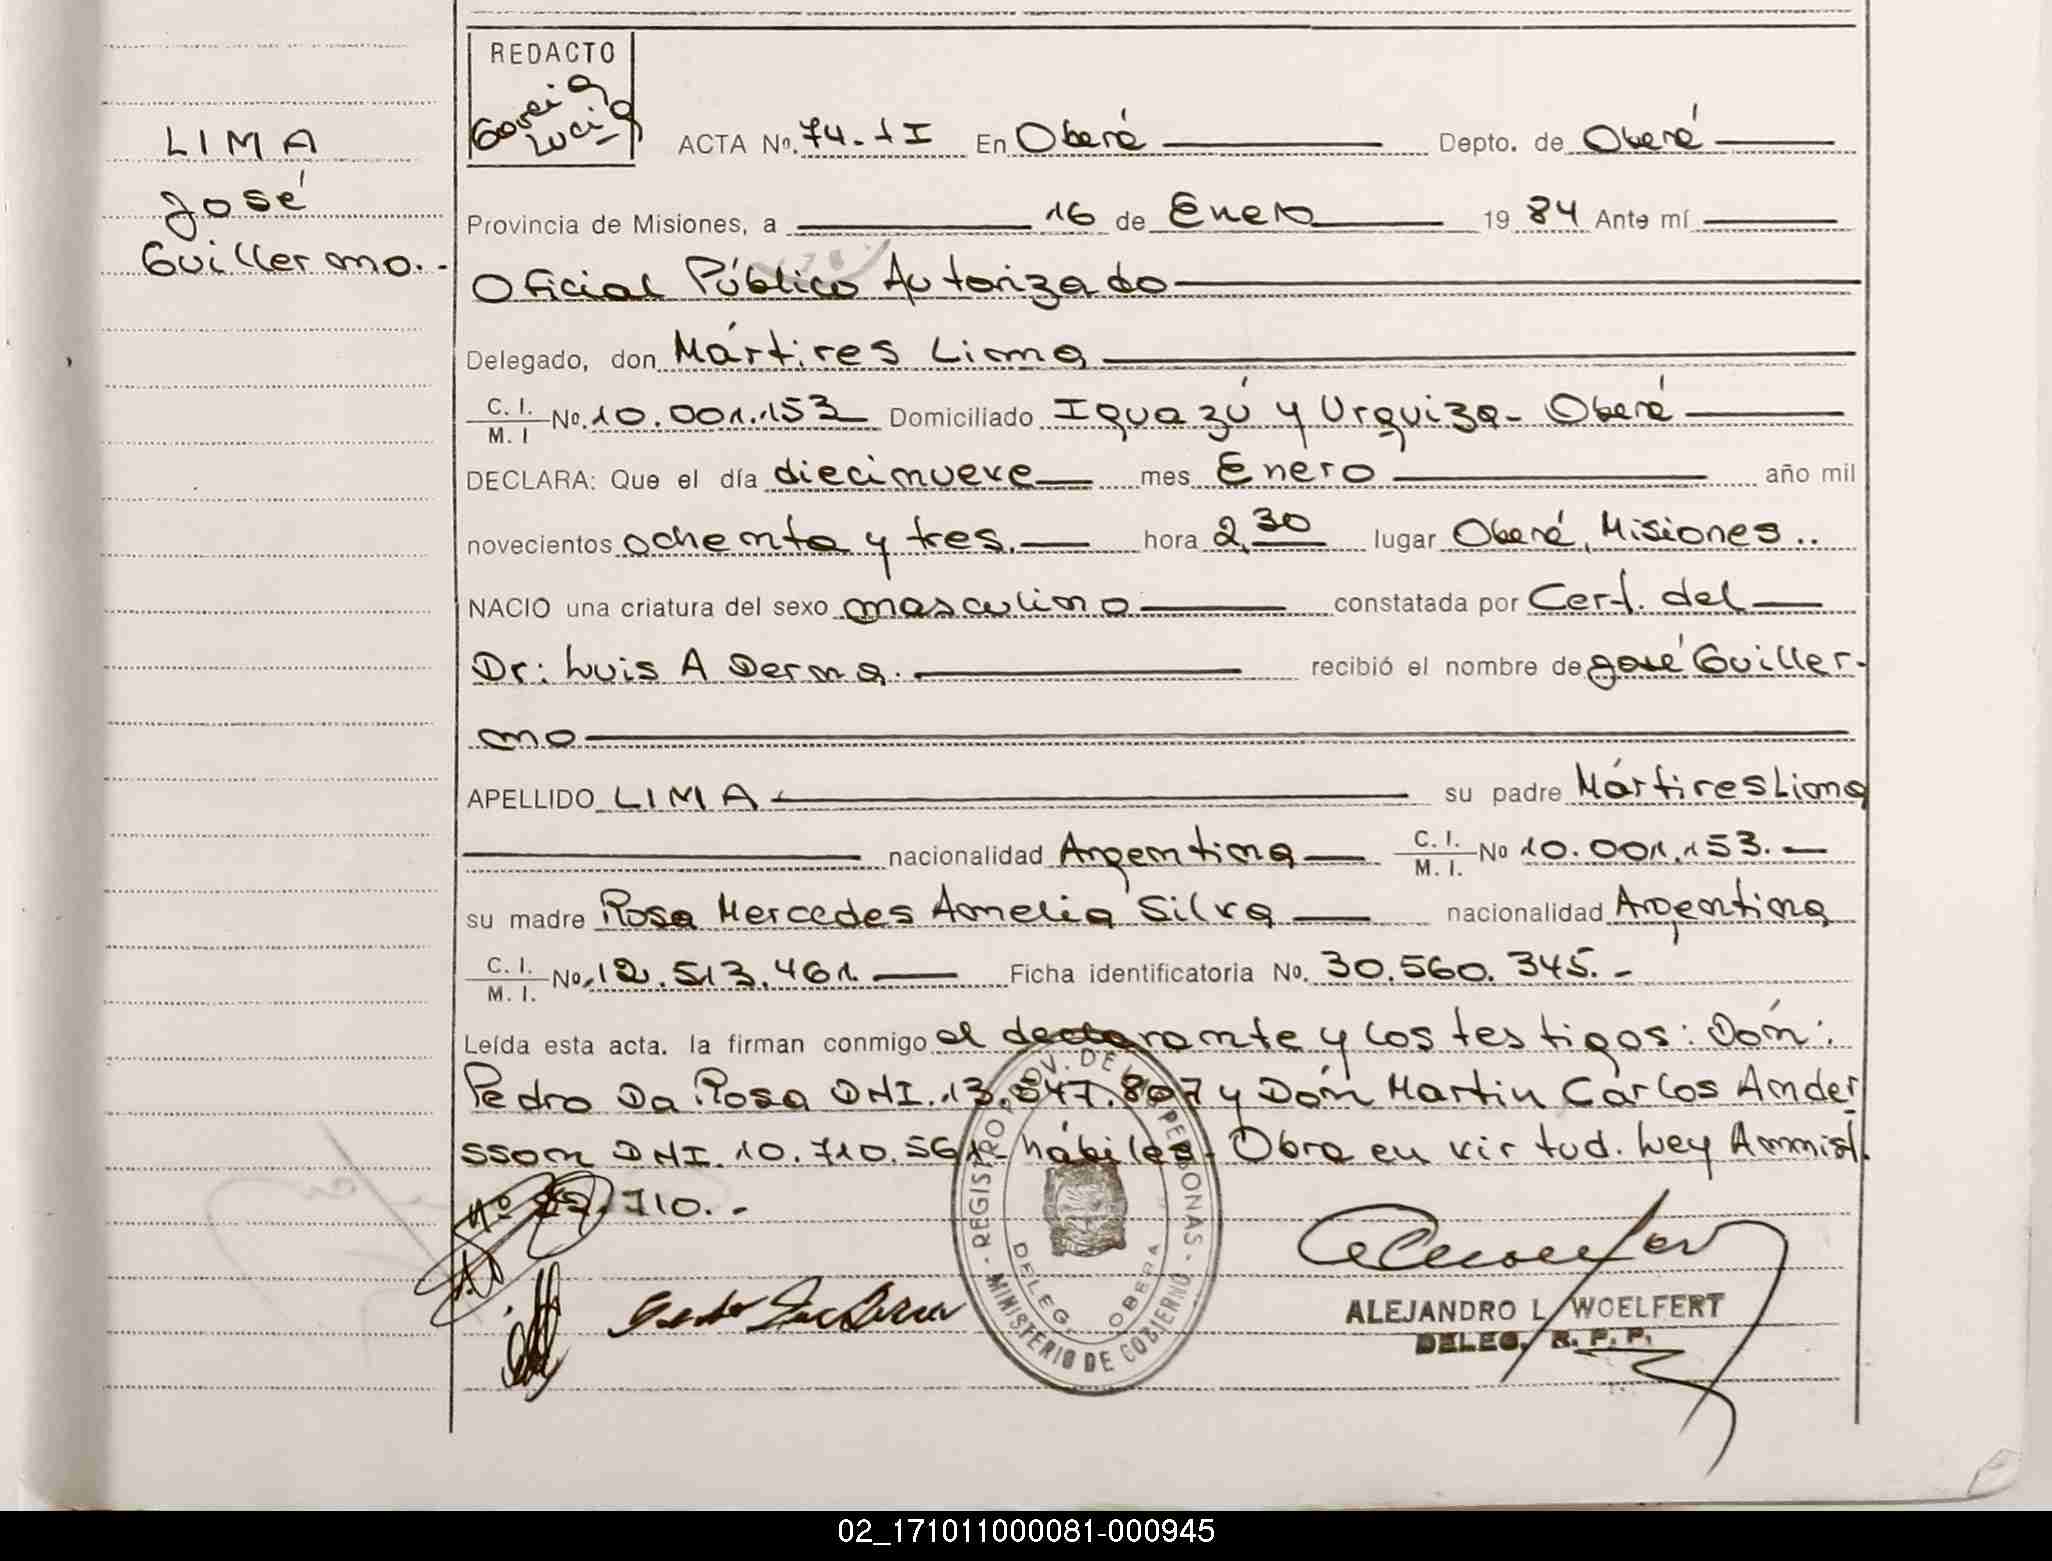 REDACTO
Garcia
Lucia
LIMA
José
Guillermo.-
ACTA Nº. 74-tI En Oberá Depto. de Oberá
Provincia de Misiones, a 16 de Enero 19 84 Ante mí
Oficial Público Autorizado
Delegado, don Mártires Lima
C. I. M. I Nº. 10.001.153 Domiciliado Iguazú y Urquiza- Oberá
DECLARA: Que el día diecinueve mes Enero año mil
novecientos ochenta y tres. hora 2,30 lugar Oberá, Misiones..
NACIO una criatura del sexo masculino constatada por Cert. del
Dr: Luis A Derna. recibió el nombre de José Guiller-
mo
APELLIDO LIMA su padre Mártires Lima
nacionalidad Argentina C. I. M. I. Nº 10.001.153.
su madre Rosa Mercedes Amelia Silva nacionalidad Argentina
C. I. M. I. Nº. 12.513.461. Ficha identificatoria Nº. 30.560.345.-
Leída esta acta. la firman conmigo el declarante y los testigos: Dón:
Pedro Da Rosa DNI.13.547.807 y Dón Martin Carlos Ander
sson DNI.10.710.561- hábiles- Obra en virtud. Ley Amnist.
Nº 22.710.-
REGISTRO PROV. DE LAS PERSONAS
DELEG. OBERA
MINISTERIO DE GOBIERNO
ALEJANDRO L WOELFERT
DELEG. R. P. P.
02_171011000081-000945